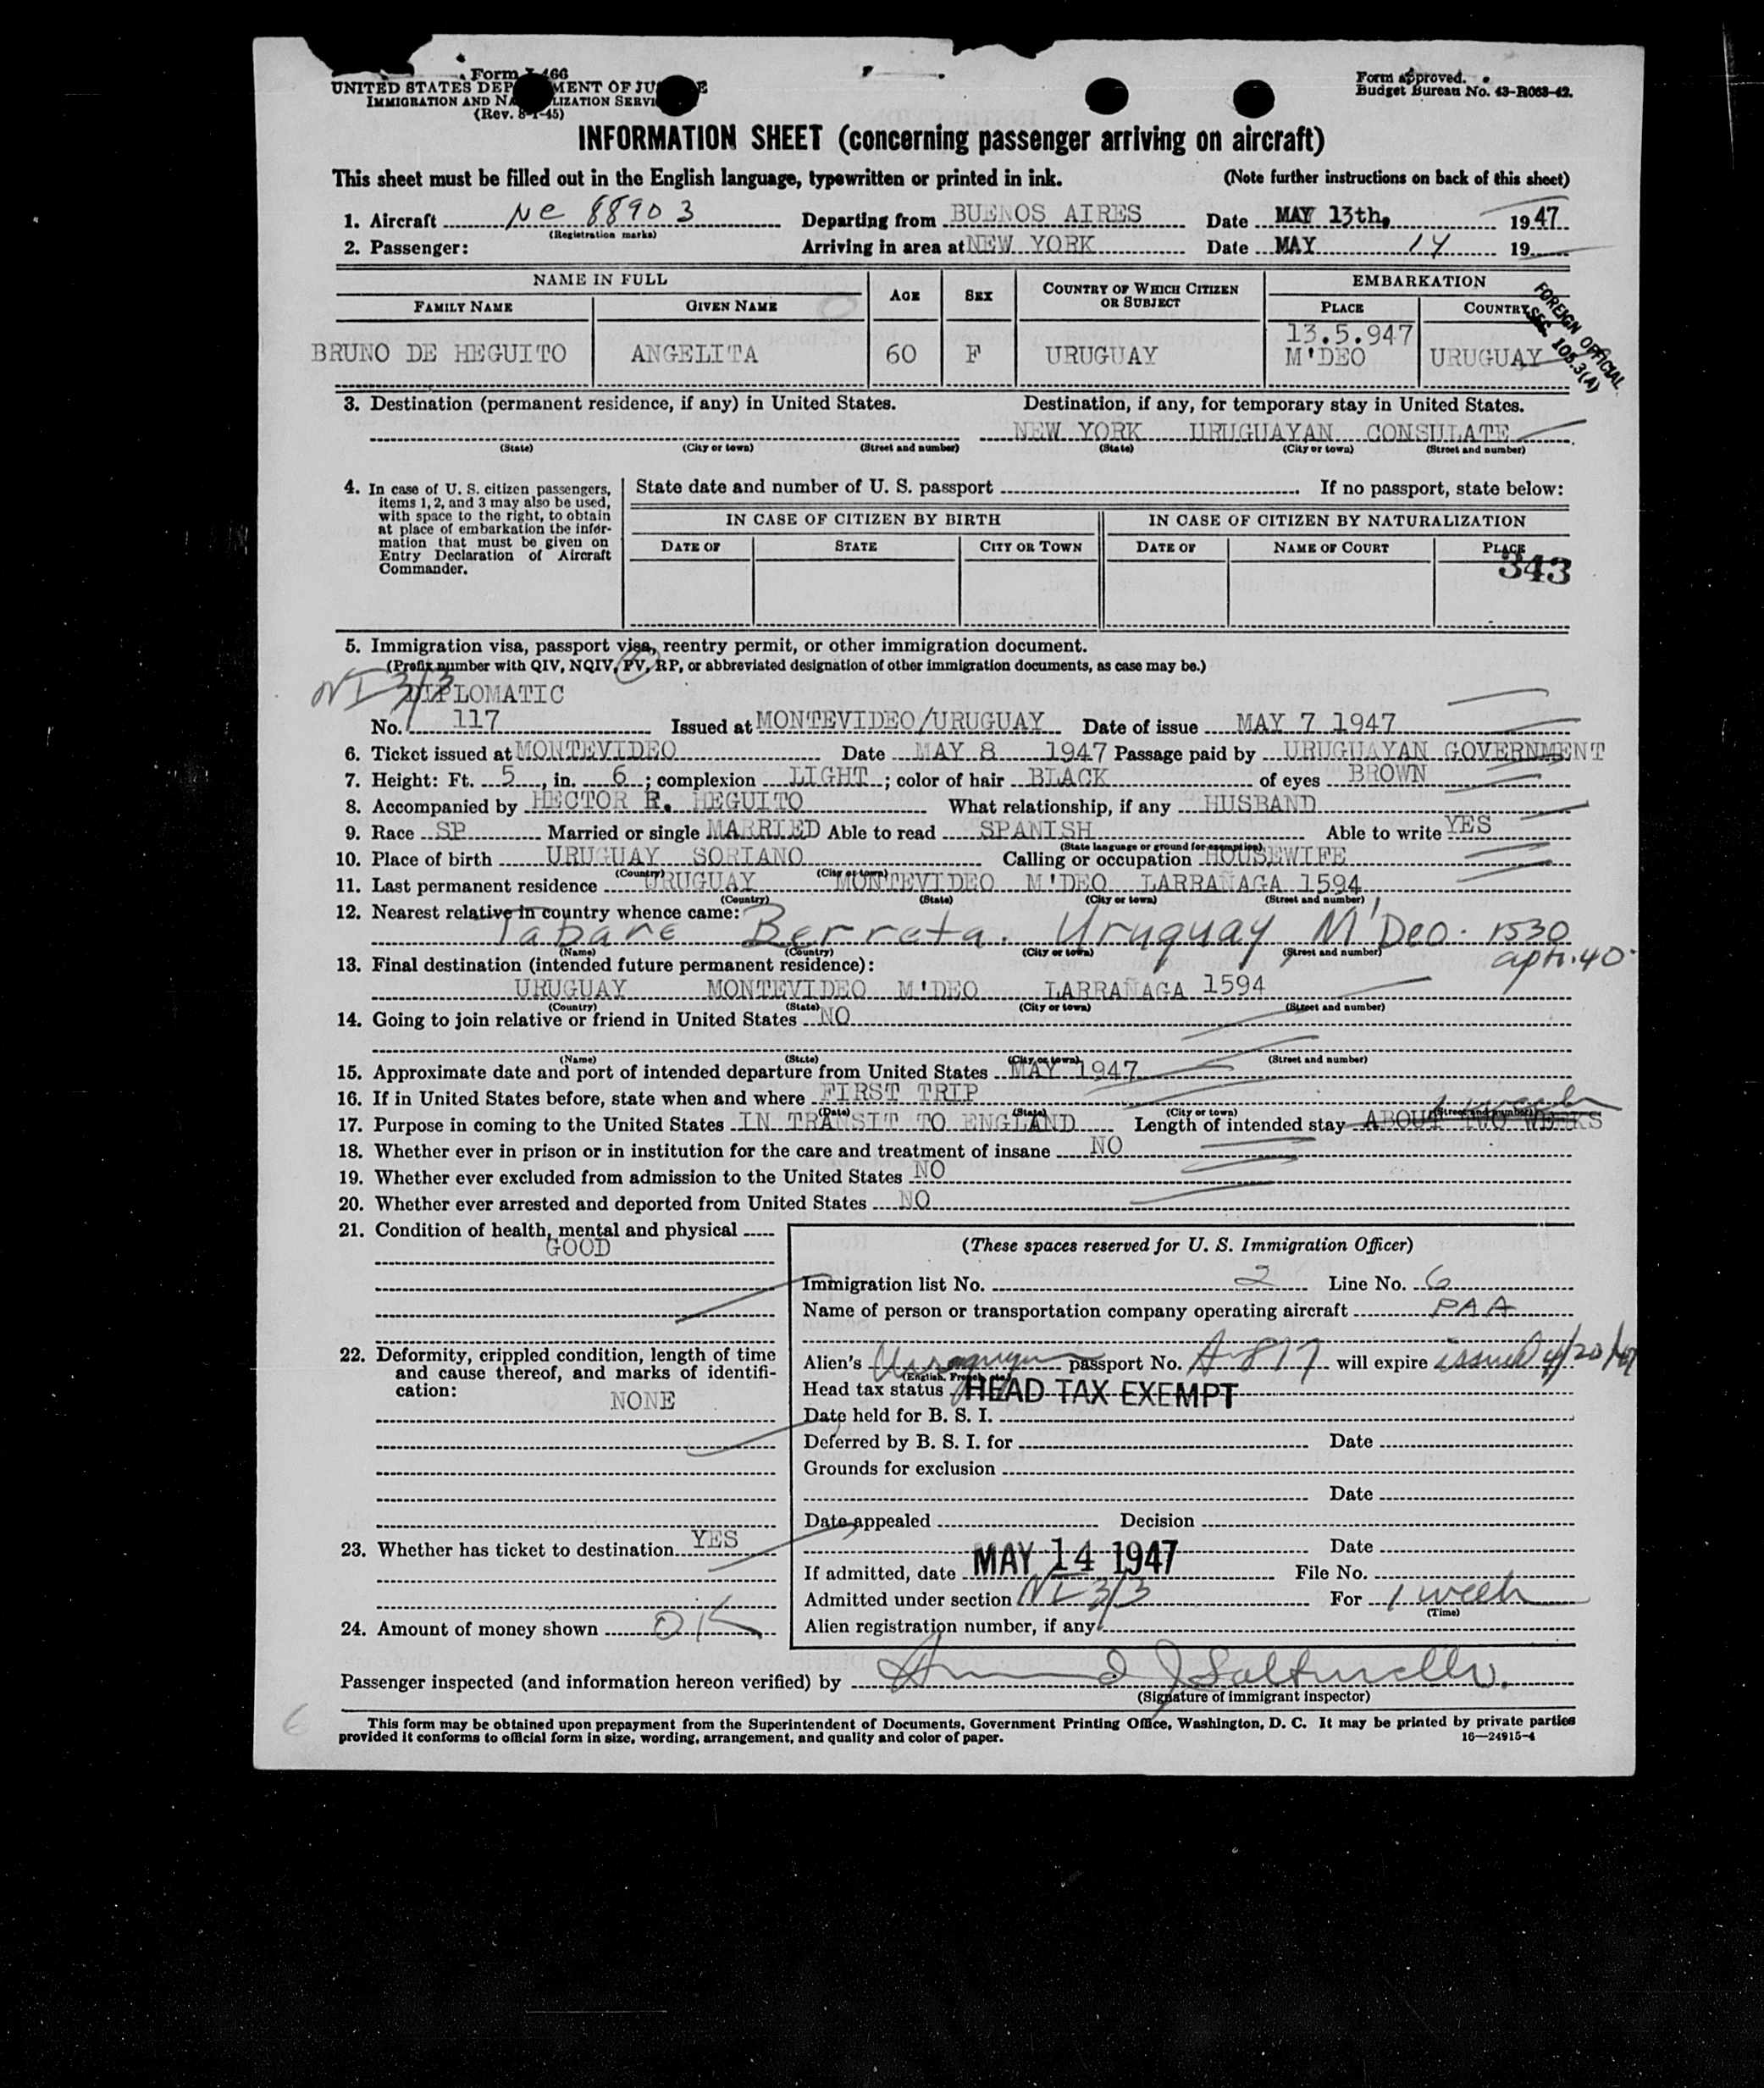 Form I-466
UNITED STATES DEPARTMENT OF JUSTICE
IMMIGRATION AND NATURALIZATION SERVICE
(Rev. 8-1-45)
Form approved.
Budget Bureau No. 43-R063-42.
INFORMATION SHEET (concerning passenger arriving on aircraft)
This sheet must be filled out in the English language, typewritten or printed in ink. (Note further instructions on back of this sheet)
1. Aircraft NC 88903 Departing from BUENOS AIRES Date MAY 13th, 1947
(Registration marks)
2. Passenger: Arriving in area at NEW YORK Date MAY 14 19
NAME IN FULL AGE SEX COUNTRY OF WHICH CITIZEN OR SUBJECT EMBARKATION
FAMILY NAME GIVEN NAME PLACE COUNTRY
FOREIGN OFFICIAL
SEC. 105.3(A)
13.5.947
BRUNO DE HEGUITO ANGELITA 60 F URUGUAY M'DEO URUGUAY
3. Destination (permanent residence, if any) in United States. Destination, if any, for temporary stay in United States.
NEW YORK URUGUAYAN CONSULATE
(State) (City or town) (Street and number) (State) (City or town) (Street and number)
4. In case of U. S. citizen passengers, items 1, 2, and 3 may also be used, with space to the right, to obtain at place of embarkation the information that must be given on Entry Declaration of Aircraft Commander.
State date and number of U. S. passport If no passport, state below:
IN CASE OF CITIZEN BY BIRTH IN CASE OF CITIZEN BY NATURALIZATION
DATE OF STATE CITY OR TOWN DATE OF NAME OF COURT PLACE
343
5. Immigration visa, passport visa, reentry permit, or other immigration document.
(Prefix number with QIV, NQIV, PV, RP, or abbreviated designation of other immigration documents, as case may be.)
NI 3/3 DIPLOMATIC
No. 117 Issued at MONTEVIDEO/URUGUAY Date of issue MAY 7 1947
6. Ticket issued at MONTEVIDEO Date MAY 8 1947 Passage paid by URUGUAYAN GOVERNMENT
7. Height: Ft. 5, in. 6; complexion LIGHT; color of hair BLACK of eyes BROWN
8. Accompanied by HECTOR R. HEGUITO What relationship, if any HUSBAND
9. Race SP Married or single MARRIED Able to read SPANISH Able to write YES
(State language or ground for exemption)
10. Place of birth URUGUAY SORIANO Calling or occupation HOUSEWIFE
(Country) (City or town)
11. Last permanent residence URUGUAY MONTEVIDEO M'DEO LARRAÑAGA 1594
(Country) (State) (City or town) (Street and number)
12. Nearest relative in country whence came:
Tabare Berreta. Uruguay M'Deo. 1530
(Name) (Country) (City or town) (Street and number)
apti. 40
13. Final destination (intended future permanent residence):
URUGUAY MONTEVIDEO M'DEO LARRAÑAGA 1594
(Country) (State) (City or town) (Street and number)
14. Going to join relative or friend in United States NO
(Name) (State) (City or town) (Street and number)
15. Approximate date and port of intended departure from United States MAY 1947
16. If in United States before, state when and where FIRST TRIP
(Date) (State) (City or town) (Street and number)
1 week
17. Purpose in coming to the United States IN TRANSIT TO ENGLAND Length of intended stay ABOUT TWO WEEKS
18. Whether ever in prison or in institution for the care and treatment of insane NO
19. Whether ever excluded from admission to the United States NO
20. Whether ever arrested and deported from United States NO
21. Condition of health, mental and physical
GOOD
22. Deformity, crippled condition, length of time and cause thereof, and marks of identification:
NONE
23. Whether has ticket to destination YES
24. Amount of money shown OK
(These spaces reserved for U. S. Immigration Officer)
Immigration list No. 2 Line No. 6
Name of person or transportation company operating aircraft PAA
Alien's Uruguayan passport No. A-817 will expire issued 4/20/47
(English, French, etc.)
Head tax status HEAD TAX EXEMPT
Date held for B. S. I.
Deferred by B. S. I. for Date
Grounds for exclusion
Date
Date appealed Decision
Date
If admitted, date MAY 14 1947 File No.
Admitted under section NI 3/3 For 1 week
(Time)
Alien registration number, if any
Passenger inspected (and information hereon verified) by
(Signature of immigrant inspector)
6
This form may be obtained upon prepayment from the Superintendent of Documents, Government Printing Office, Washington, D. C. It may be printed by private parties
provided it conforms to official form in size, wording, arrangement, and quality and color of paper. 16—24915-4